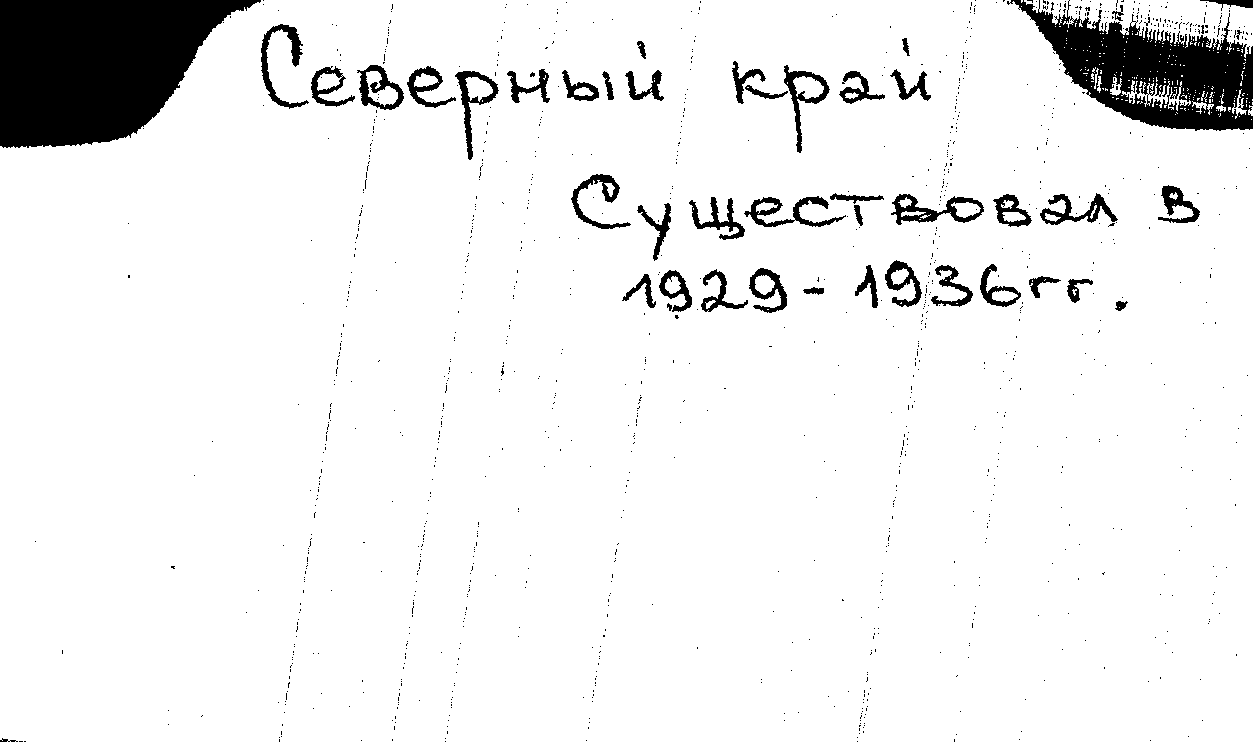 Северный край
Существовал в
1929 - 1936 гг.